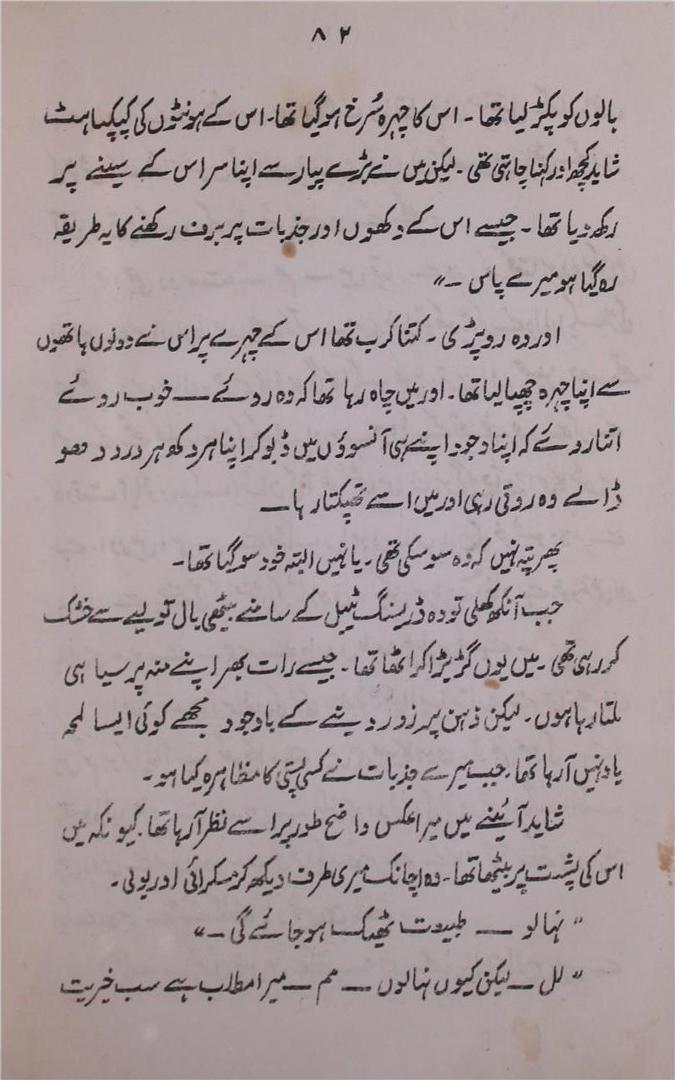 ۸۲
بالوں کو پکڑ لیا تھا ۔ اس کا چہرہ سُرخ ہو گیا تھا۔ اس کے ہونٹوں کی کپکپاہٹ
شاید کچھ اور کہنا چاہتی تھی ۔ لیکن میں نے بڑے پیار سے اپنا سر اس کے سینے پر
رکھ دیا تھا ۔ جیسے اس کے دکھوں اور جذبات پر برف رکھنے کا یہ طریقہ
رہ گیا ہو میرے پاس ۔"
اور وہ رو پڑی ۔ کتنا کرب تھا اس کے چہرے پر اس نے دونوں ہاتھوں
سے اپنا چہرہ چھپا لیا تھا ۔ اور میں چاہ رہا تھا کہ وہ روئے ـــ خوب روئے
اتنا روئے کہ اپنا وجود اپنے ہی آنسوؤں میں ڈبو کر اپنا ہر دکھ ہر درد دھو
ڈالے وہ روتی رہی اور میں اسے تھپکتا رہا ـــ
پھر پتہ نہیں کہ وہ سو سکی تھی ۔ یا نہیں البتہ خود سو گیا تھا ۔
جب آنکھ کھلی تو وہ ڈریسنگ ٹیبل کے سامنے بیٹھی بال تولیے سے خشک
کر رہی تھی ۔ میں یوں گڑبڑا کر اٹھا تھا ۔ جیسے رات بھر اپنے منہ پر سیاہی
ملتا رہا ہوں ۔ لیکن ذہن پر زور دینے کے باوجود مجھے کوئی ایسا لمحہ
یاد نہیں آ رہا تھا ۔ جب میرے جذبات نے کسی پستی کا مظاہرہ کیا ہو ۔
شاید آئینے میں میرا عکس واضح طور پر اسے نظر آ رہا تھا ۔ کیونکہ میں
اس کی پشت پر بیٹھا تھا ۔ وہ اچانک میری طرف دیکھ کر مسکرائی اور بولی ۔
" نہا لو ـــ طبیعت ٹھیک ہو جائے گی ۔"
" لل ـــ لیکن کیوں نہالوں ـــ مم ـــ میرا مطلب ہے سب خیریت